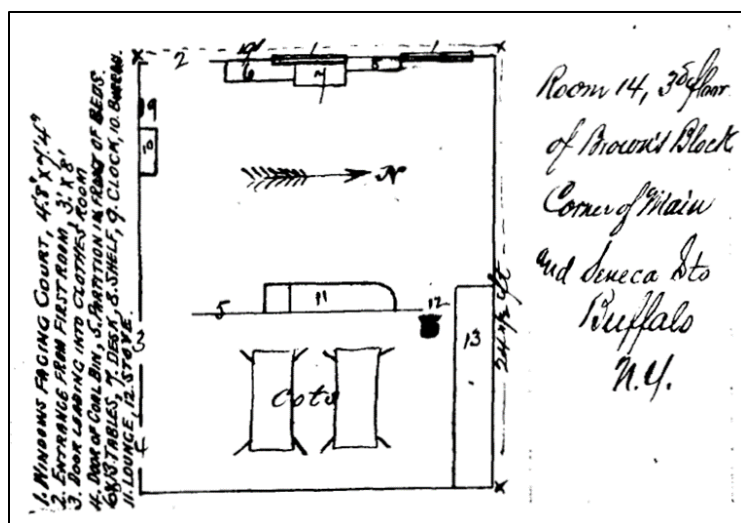 1. WINDOWS FACING COURT, 4'8" X 7'4"
2. ENTRANCE FROM FIRST ROOM, 3' X 8'
3. DOOR LEADING INTO CLOTHES' ROOM
4. DOOR OF COAL BIN, 5. PARTITION IN FRONT OF BEDS.
6 & 13. TABLES, 7. DESK, 8. SHELF, 9. CLOCK, 10. BUREAU.
11. LOUNGE, 12. STOVE.
2
1
1
6
7
9
10
N
5
11
12
13
3
4
Cots
Room 14, 3d floor
of Brown's Block
Corner of Main
and Seneca Sts
Buffalo
N.Y.